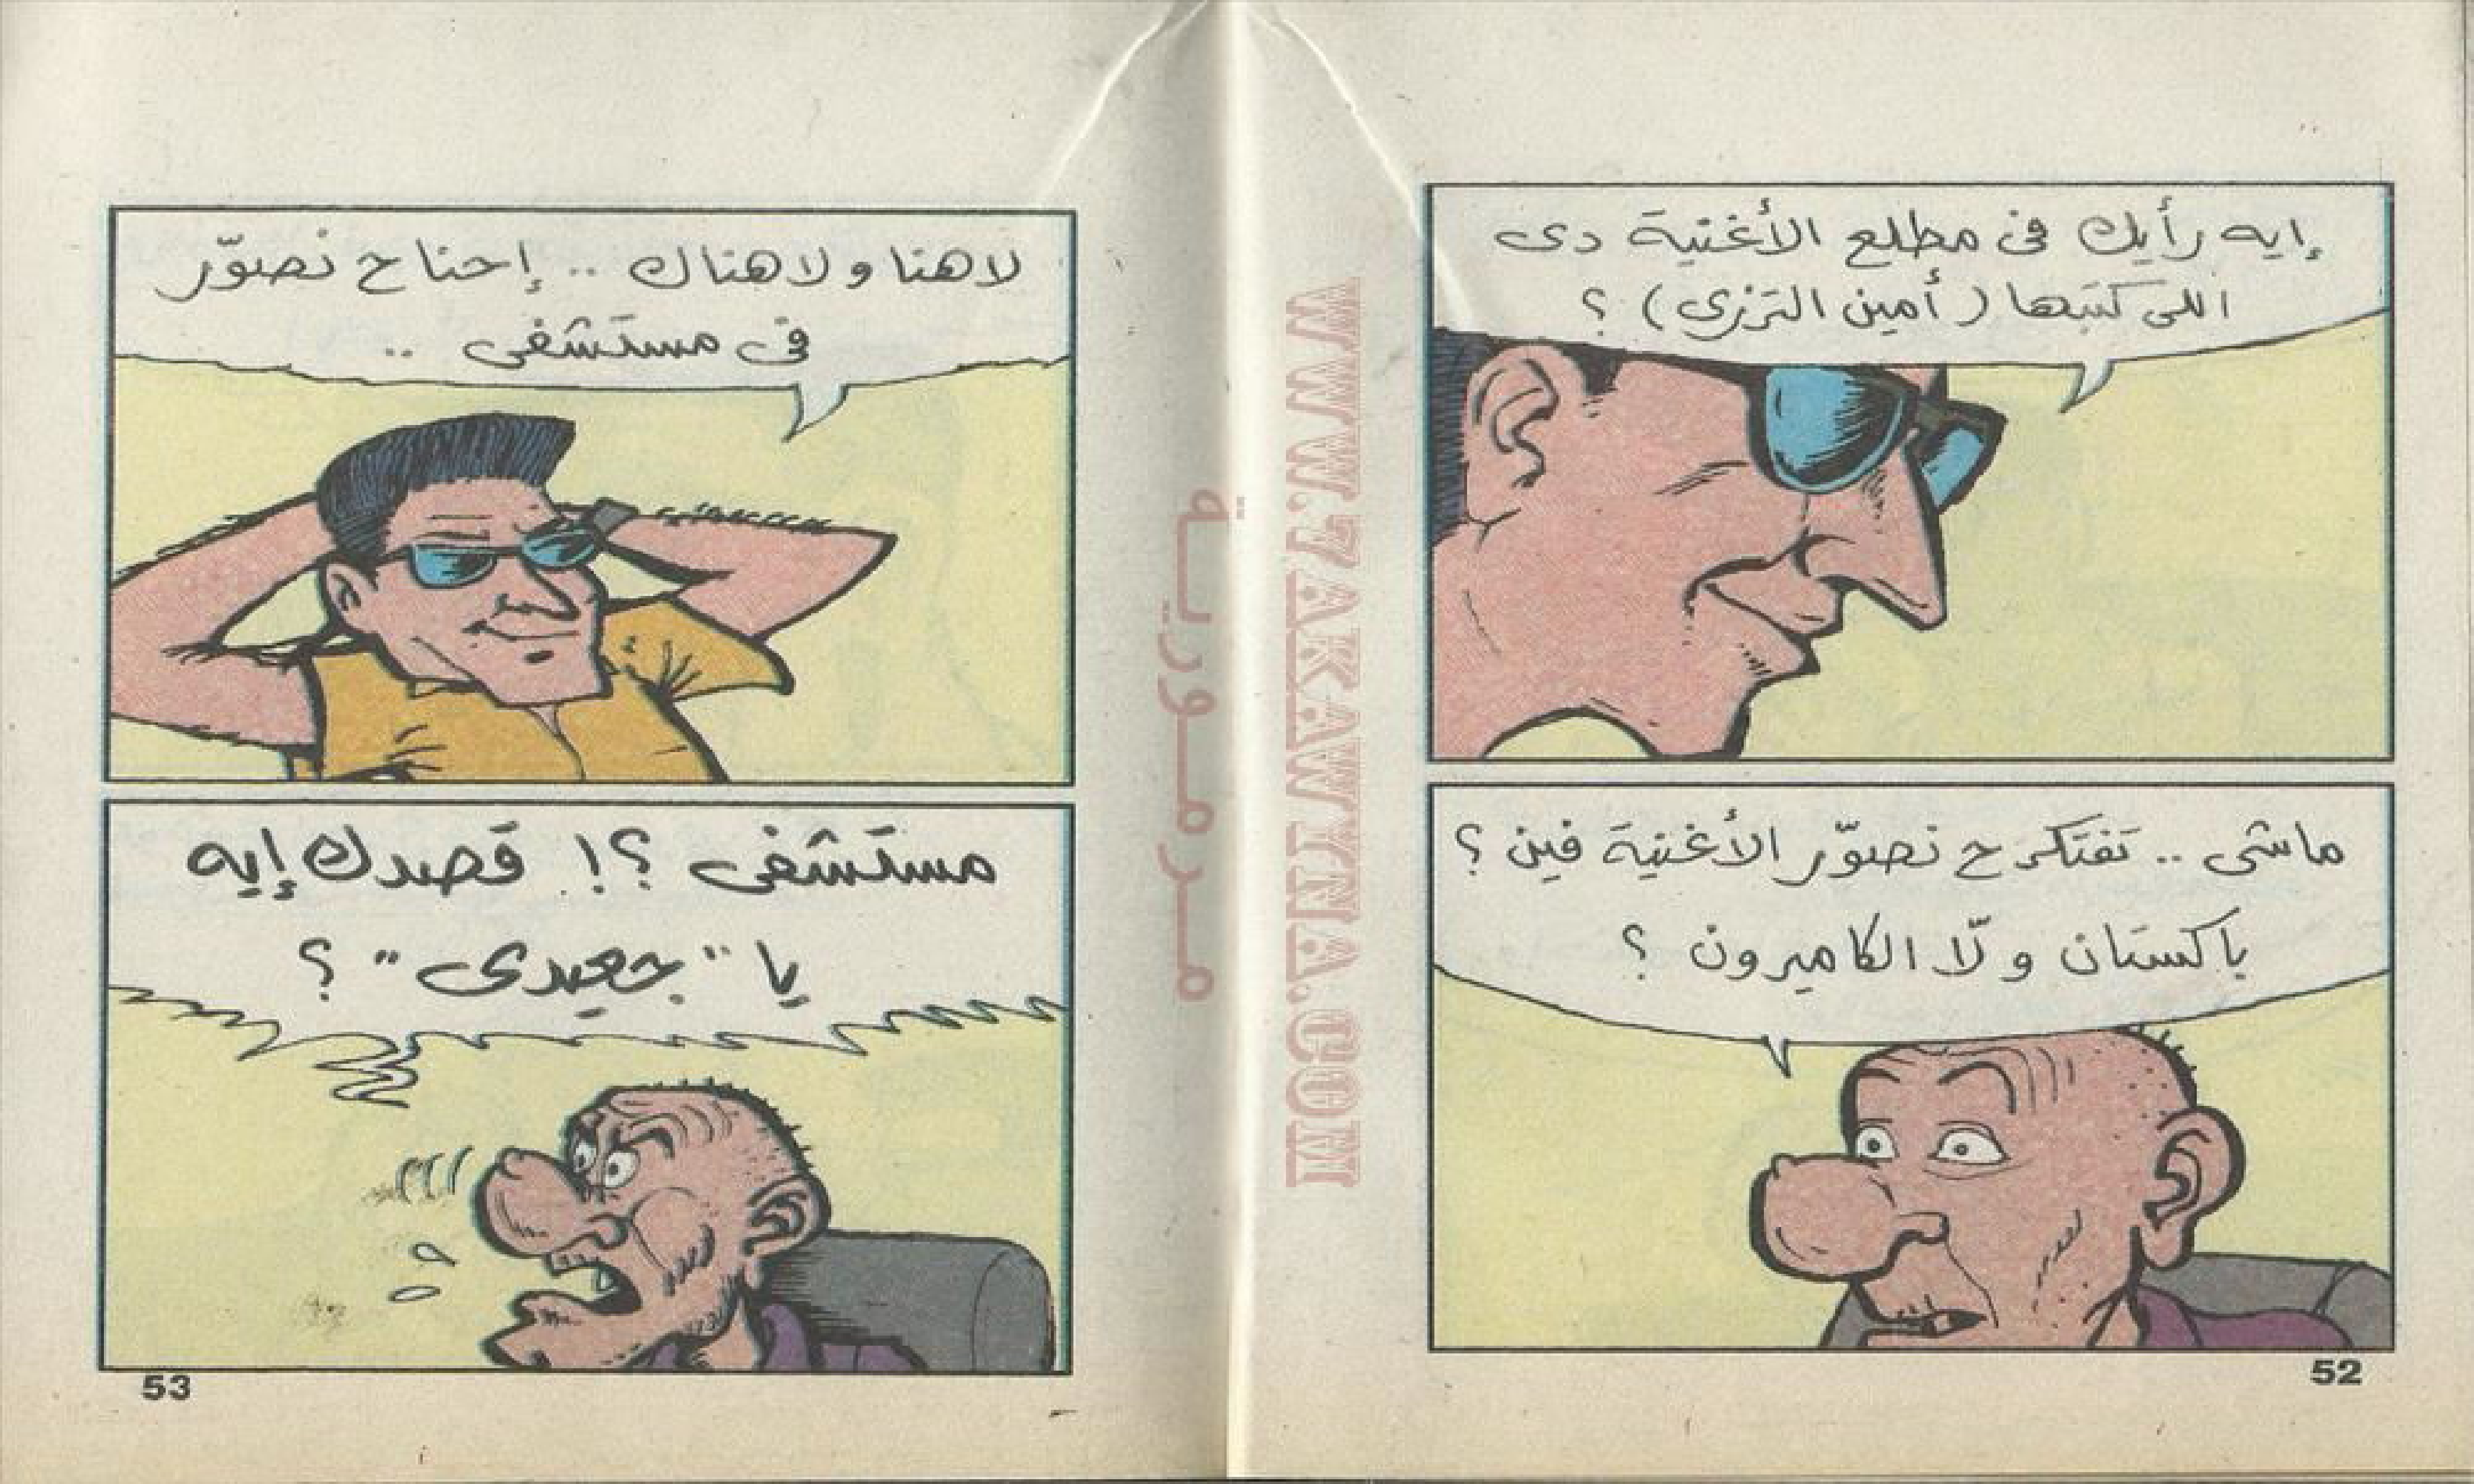 إيه رأيك فى مطلع الأغنية دى
اللى كتبها (أمين الترزى) ؟
ماشى .. تفتكر ح نصوّر الأغنية فين ؟
باكستان ولّا الكاميرون ؟
52
لا هنا ولا هناك .. إحنا ح نصوّر
فى مستشفى ..
مستشفى ؟! قصدك إيه
يا "جعيدى" ؟
53
WWW.7AKAWINA.COM
مرمورية